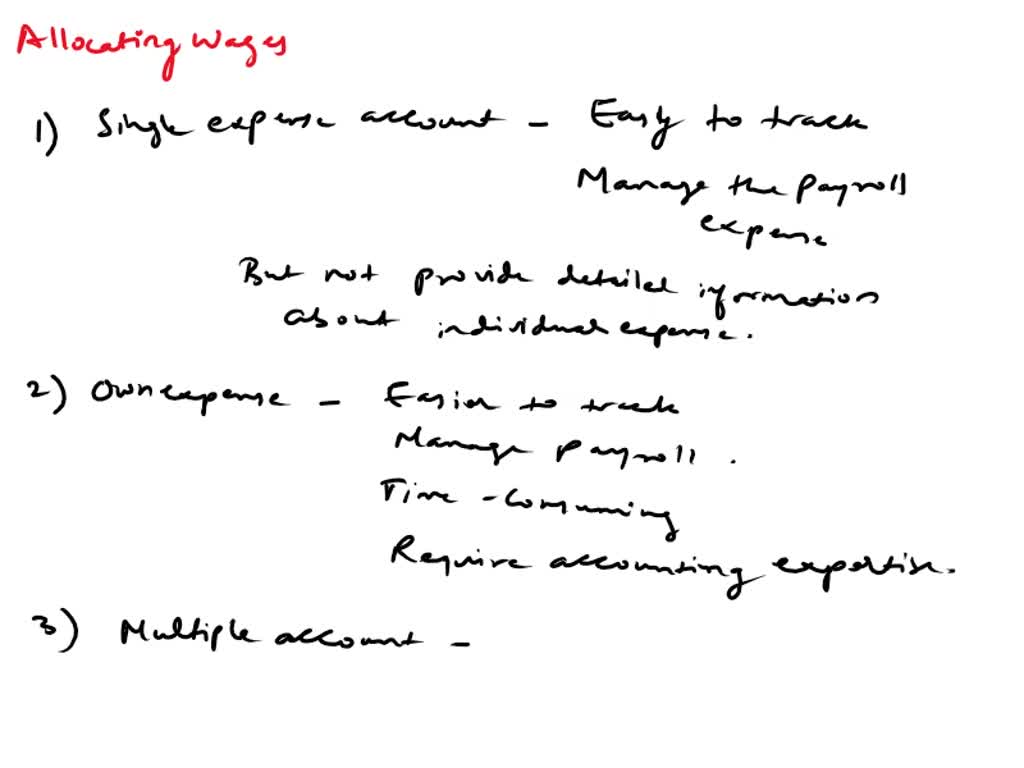 Allocating Wages
1) Single expense account - Easy to track
Manage the payroll
expense
But not provide detailed information
about individual expense.
2) Own expense - Easier to track
Manage payroll.
Time-consuming
Require accounting expertise.
3) Multiple account -